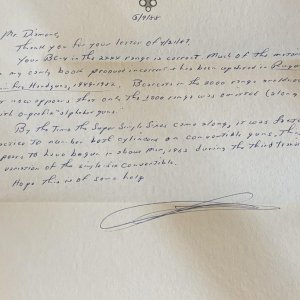 5/9/88
Mr. Dismore,
Thank you for your letter of 4/21/87.
Your BC-4 in the 22XX range is correct. Much of the material
my early book proved incorrect & has been updated in Ruger
for Handguns, 1949-1982. Bearcats in the 8000 range
now appears that only the 1000 range was omitted (along
with O-prefix "alphabet guns."
By the time the Super Single Sixes came along, it was factory
practice to number both cylinders on convertible guns. This
appears to have begun in about 1963 during the third
variation of the single-six convertible.
Hope this is of some help